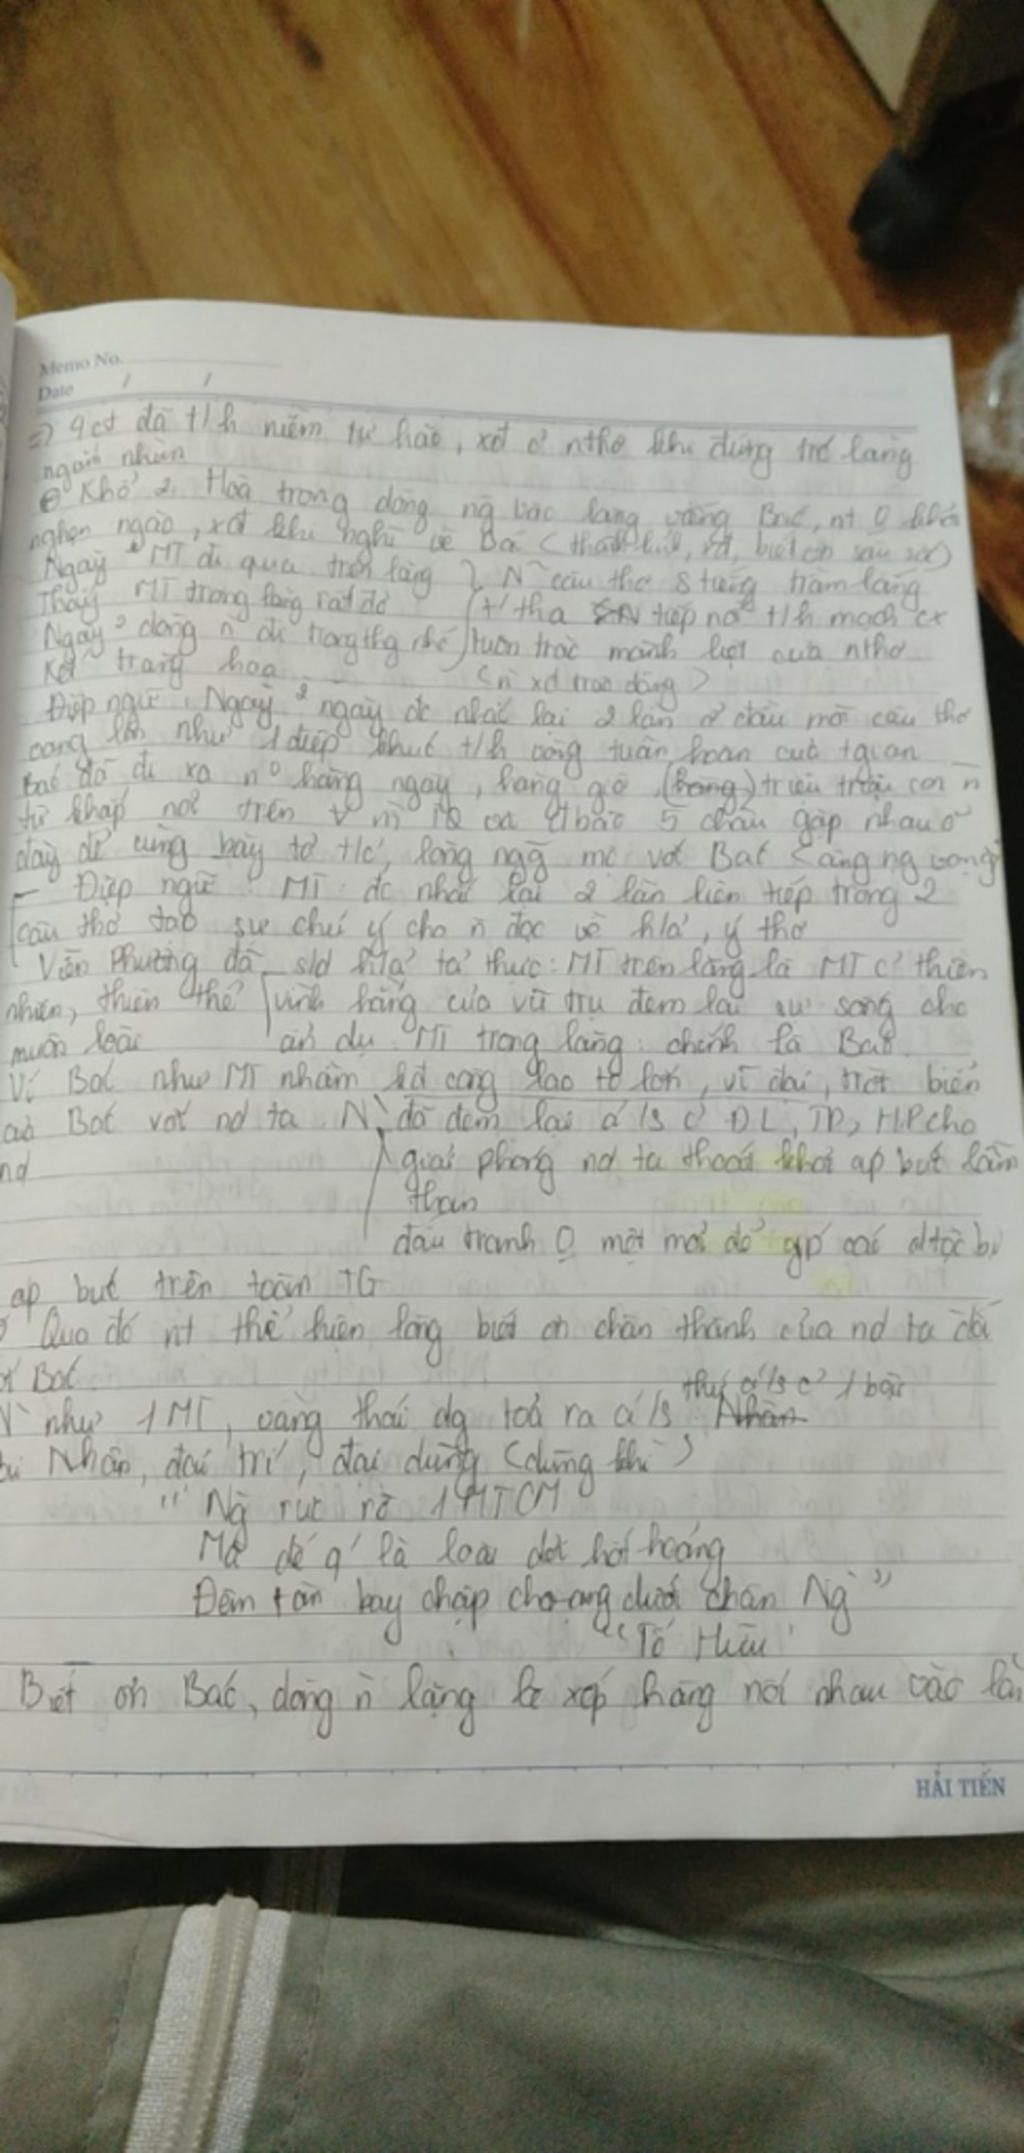 Memo No.
Date / /
=) 9ct đã t/h niềm tự hào, xđ ở nthơ khi đứng trc lăng
ngắm nhìn
Khổ 2. Hoà trong dòng ng vào lăng viếng Bác, nt 0 khỏi
nghẹn ngào, xđ khi nghĩ về Bá
Ngày² MT đi qua trên lăng } N~ câu thơ 8 tiếng trầm lắng
Thấy MT trong lăng rất đỏ t' tha tiếp nối t/h mạch cx
Ngày² dòng n đi trong thg nhớ tuôn trào mãnh liệt của nthơ
Kết tràng hoa (n xđ trào dâng)
Điệp ngữ: Ngày² ngày đc nhắc lại 2 lần ở đầu mỗi câu thơ
như 1 điệp khúc t/h vòng tuần hoàn của tgian
Bác đã đi xa n° hàng ngày, hàng giờ, (hàng) triệu triệu con n
từ khắp nơi trên và 4 bắc 5 châu gặp nhau ở
đây để cùng bày tỏ t/c', lòng ngg mộ với Bác
- Điệp ngữ: MT đc nhắc lại 2 lần liên tiếp trong 2
câu thơ tạo sự chú ý cho n đọc về h/ả', ý thơ
Viễn Phương đã s/d h/ả' tả thực: MT trên lăng là MT c' thiên
nhiên, thiên thể vĩnh hằng của vũ trụ đem lại sự sống cho
muôn loài ẩn dụ MT trong lăng: chính là Bác
Ví Bác như MT nhằm công lao to lớn, vĩ đại, trời biển
Bác với nd ta N` đã đem lại á/s c' ĐL, TD, HP cho
nd giải phóng nd ta thoát khỏi áp bức lầm
than
đấu tranh 0 mệt mỏi để gp các dtộc bị
áp bức trên toàn TG
Qua đó nt thể hiện lòng biết ơn chân thành của nd ta đối
Bác
thứ á/s c' 1 bậc
N` như 1 MT, toả ra á/s Nhân
Nhân, đại trí, đại dũng (dũng khí)
"Ng rực rỡ 1 MTCM
Mà đế q' là loài dơi hốt hoảng
Đêm tàn bay chập choạng dưới chân Ng"
"Tố Hữu"
Biết ơn Bác, dòng n lặng lẽ xếp hàng nối nhau vào
HẢI TIẾN